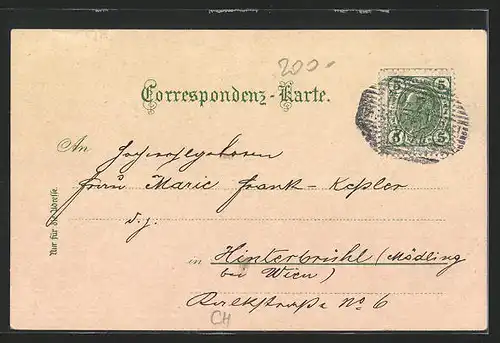 200.-
Correspondenz-Karte.
5 5
5 5
An Hochwohlgeboren
Frau Marie Frank-Kepler
d.z.
in Hinterbrühl (Mödling
bei Wien)
No 6
Nur für die Adresse.
CH